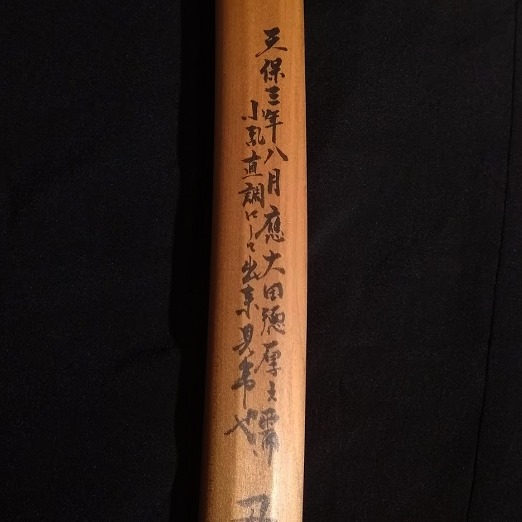 天保三年八月應大田德厚之需
小乱直調にして出来見事也